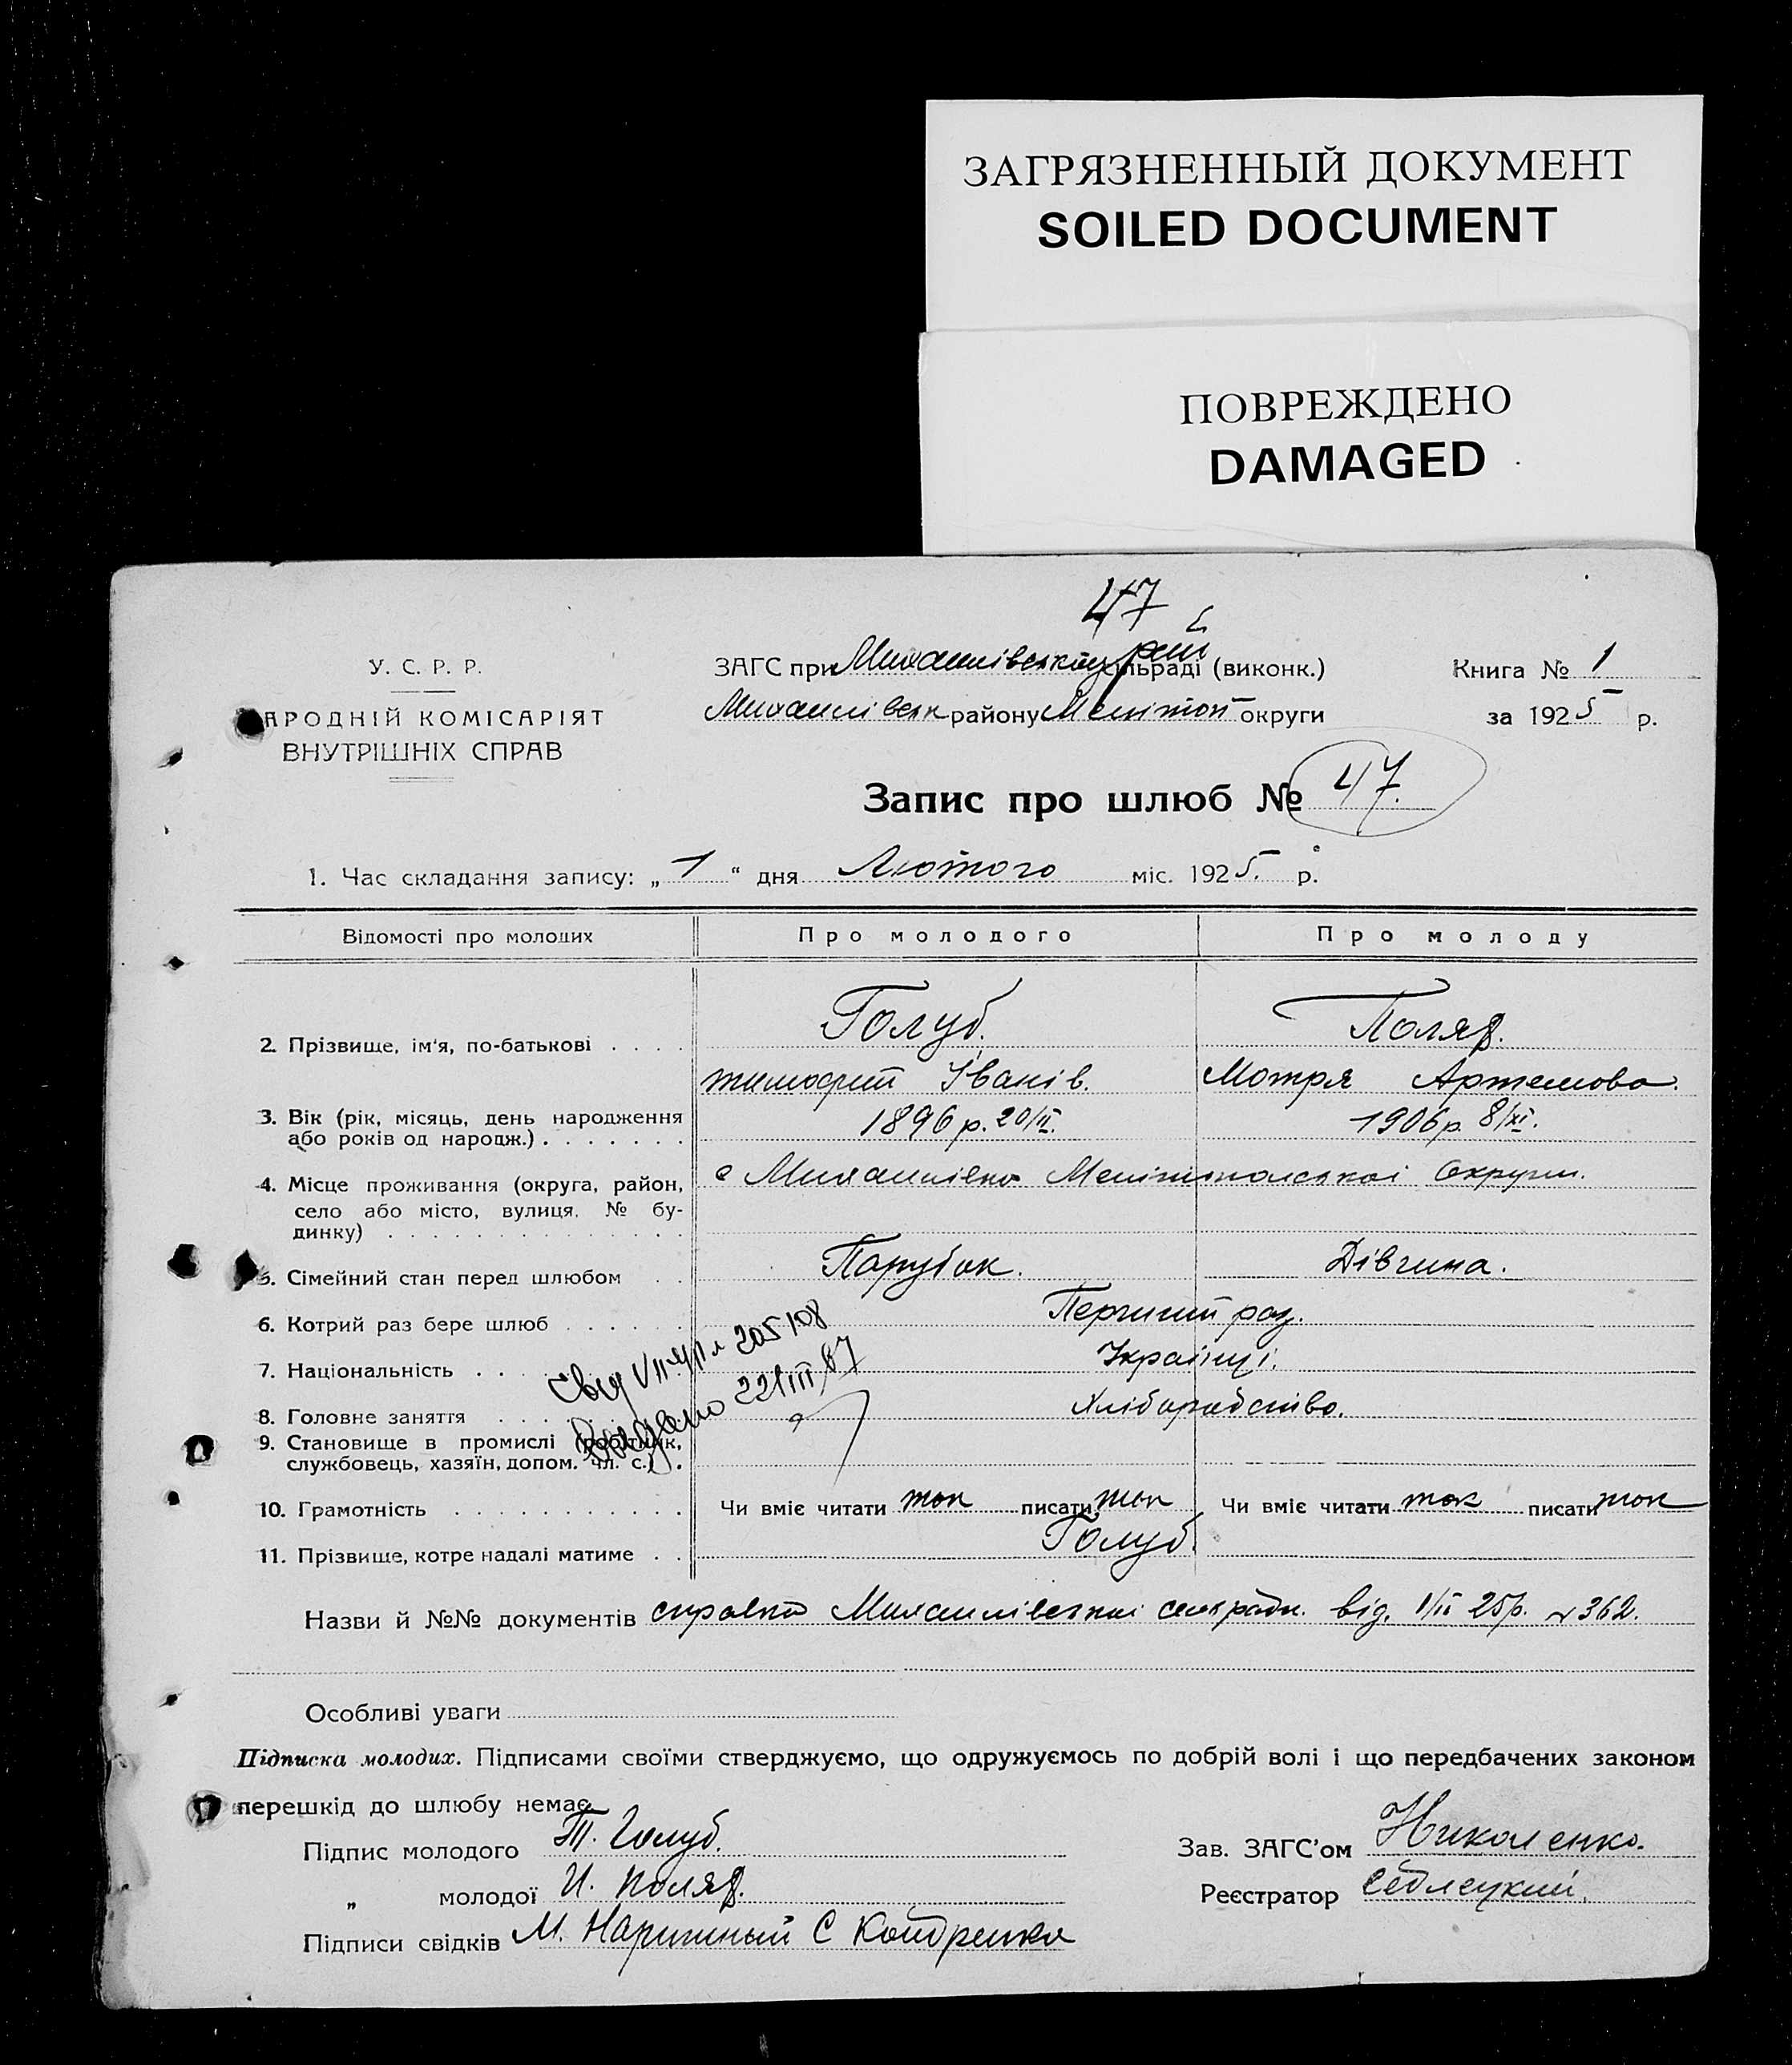 ЗАГРЯЗНЕННЫЙ ДОКУМЕНТ
SOILED DOCUMENT
ПОВРЕЖДЕНО
DAMAGED
47
У. С. Р. Р.
АРОДНІЙ КОМІСАРІЯТ
ВНУТРІШНІХ СПРАВ
ЗАГС при Михайлівському рай сільраді (виконк.)
Михайлівськ району Мелітоп округи
Книга № 1
за 1925 р.
Запис про шлюб № 47.
1. Час складання запису: „1“ дня Лютого міс. 1925. р.
Відомості про молодих Про молодого Про молоду
2. Прізвище, ім'я, по-батькові . . . . Голуб. Поляд.
тимофий Іванів. Мотря Артемова.
3. Вік (рік, місяць, день народження або років од народж.) . . . . . . . 1896 р. 20/II. 1906 р. 8/XI.
4. Місце проживання (округа, район, село або місто, вулиця, № будинку) . . . . . . . . . . . . . . с Михайлівка Мелітопольскоі Округи.
5. Сімейний стан перед шлюбом . . Парубок. Дівчина.
6. Котрий раз бере шлюб . . . . . . Перший раз.
7. Національність . . . . Українці.
8. Головне заняття . . . . Хліборобство.
9. Становище в промислі (робітник, службовець, хазяїн, допом. чл. с.) .
Свід 205108
Видано 22/III 67
10. Грамотність . . . . . . . . . . . Чи вміє читати так писати так Чи вміє читати так писати так
11. Прізвище, котре надалі матиме . . Голуб.
Назви й №№ документів справка Михайлівскоі сельради. від. 1/II 25р. № 362.
Особливі уваги
Підписка молодих. Підписами своїми стверджуємо, що одружуємось по добрій волі і що передбачених законом
перешкід до шлюбу немає.
Підпис молодого Т. Голуб. Зав. ЗАГС'ом Николенко.
„ молодої И. Поляд. Реєстратор
Підписи свідків М. Нарижный С Кондренко